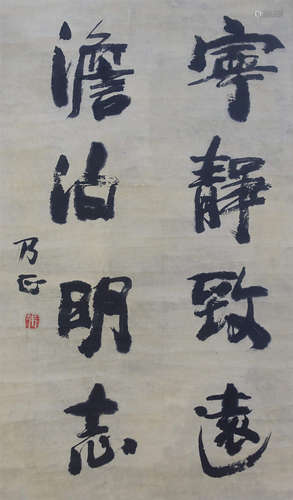 寧靜致遠
澹泊明志
乃正